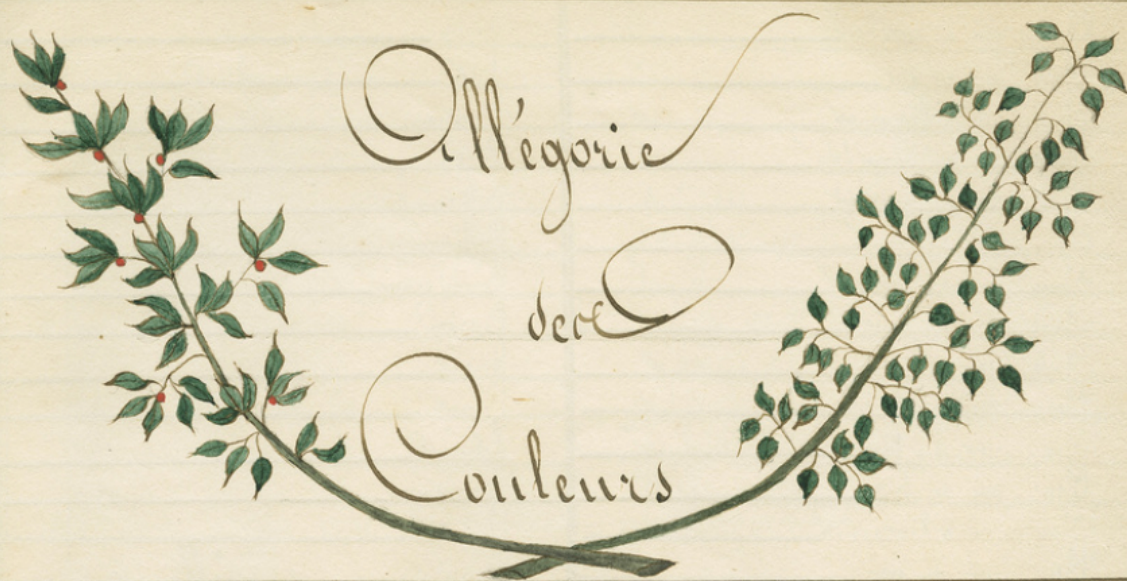 Allégorie
des
Couleurs